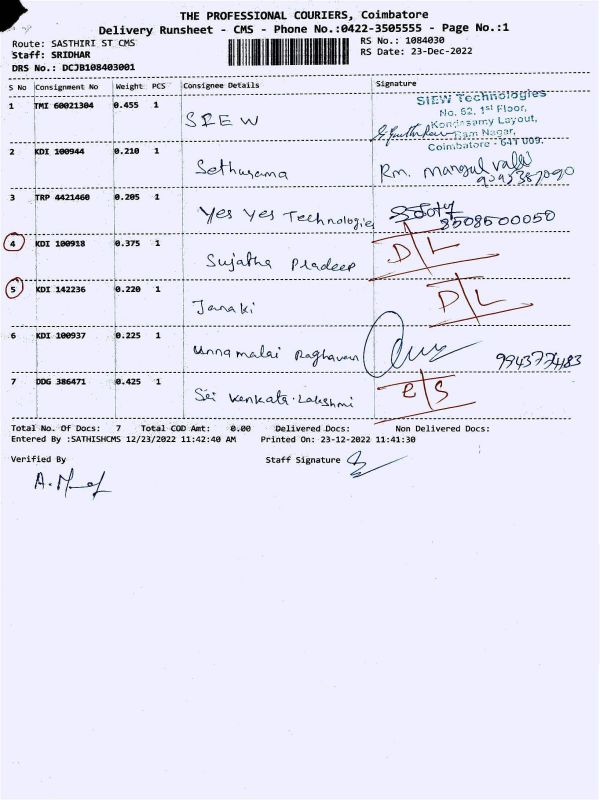 THE PROFESSIONAL COURIERS, Coimbatore
Delivery Runsheet - CMS - Phone No.:0422-3505555 - Page No.:1
Route: SASTHIRI ST CMS
Staff: SRIDHAR
DRS No.: DCJB108403001
RS No.: 1084030
RS Date: 23-Dec-2022
S No Consignment No Weight PCS Consignee Details Signature
1 TMI 60021304 0.455 1 SREW
SIEW Technologies
No. 62, 1st Floor,
Kondasamy Layout,
Ram Nagar,
Coimbatore - 641 009.
2 KDI 100944 0.210 1 Sethurama Rm. mangal valli
3 TRP 4421460 0.205 1 Yes Yes Technologies
8508500050
4 KDI 100918 0.375 1 Sujatha Pradeep D/L
5 KDI 142236 0.220 1 Janaki D/L
6 KDI 100937 0.225 1 unnamalai Raghavan
7 DDG 386471 0.425 1 Sri Venkata Lakshmi e/s
Total No. Of Docs: 7 Total COD Amt: 0.00 Delivered Docs: Non Delivered Docs:
Entered By :SATHISHCMS 12/23/2022 11:42:40 AM Printed On: 23-12-2022 11:41:30
Verified By Staff Signature